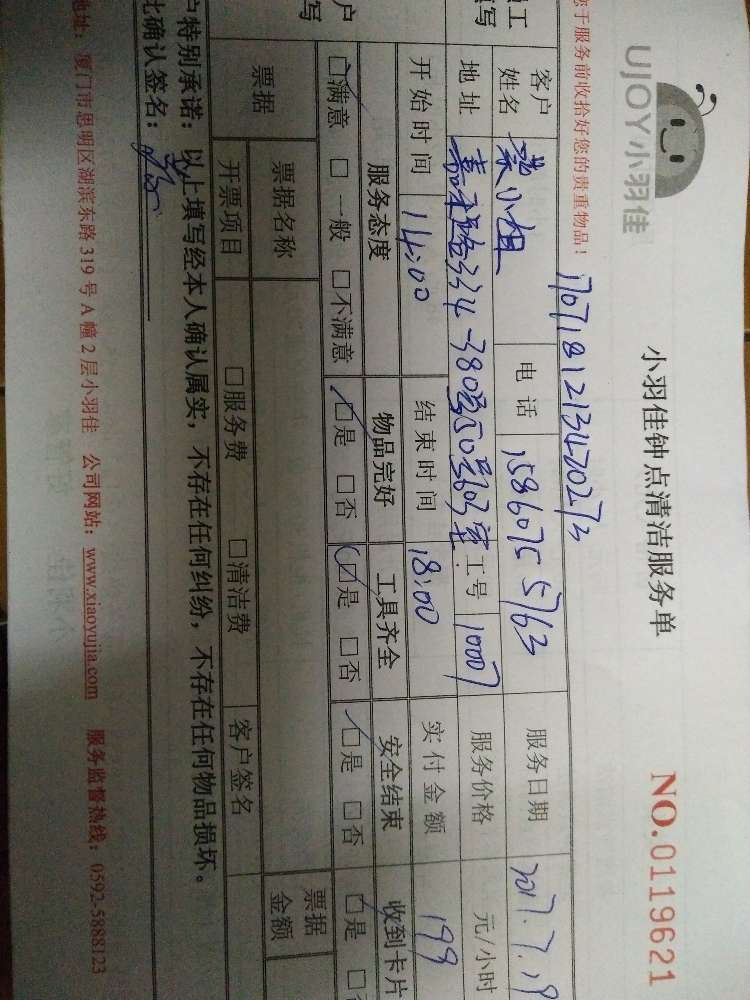 UJOY小羽佳
小羽佳钟点清洁服务单
NO.0119621
于服务前收拾好您的贵重物品！
1707181213470273
工 客户姓名 小姐 电话 15860755763 服务日期 2017.7.19
填写 地址 嘉禾路334-380号50号603室 工号 10007 服务价格 元/小时
开始时间 14:00 结束时间 18:00 实付金额 199
户 服务态度 物品完好 工具齐全 安全结束 收到卡片
写 □满意 □一般 □不满意 □是 □否 □是 □否 □是 □否 □是 □否
票据 票据名称 票据金额
开票项目 □服务费 □清洁费 客户签名
户特别承诺：以上填写经本人确认属实，不存在任何纠纷，不存在任何物品损坏。
此确认签名：
地址：厦门市思明区湖滨东路319号A幢2层小羽佳 公司网站：www.xiaoyujia.com 服务监督热线：0592-5888123